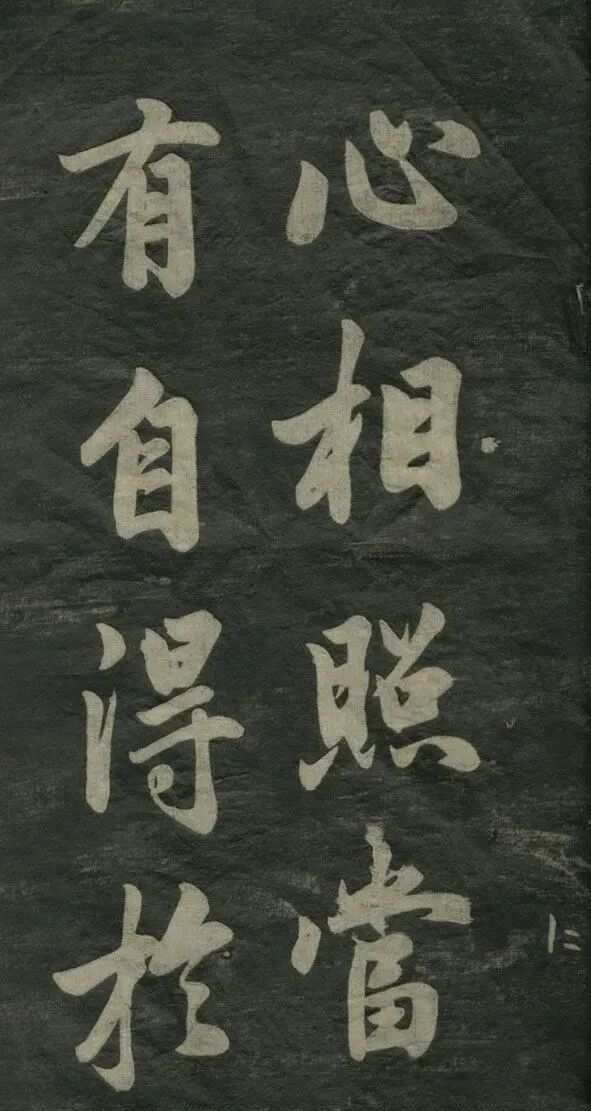 心相照當
有自得於
仁